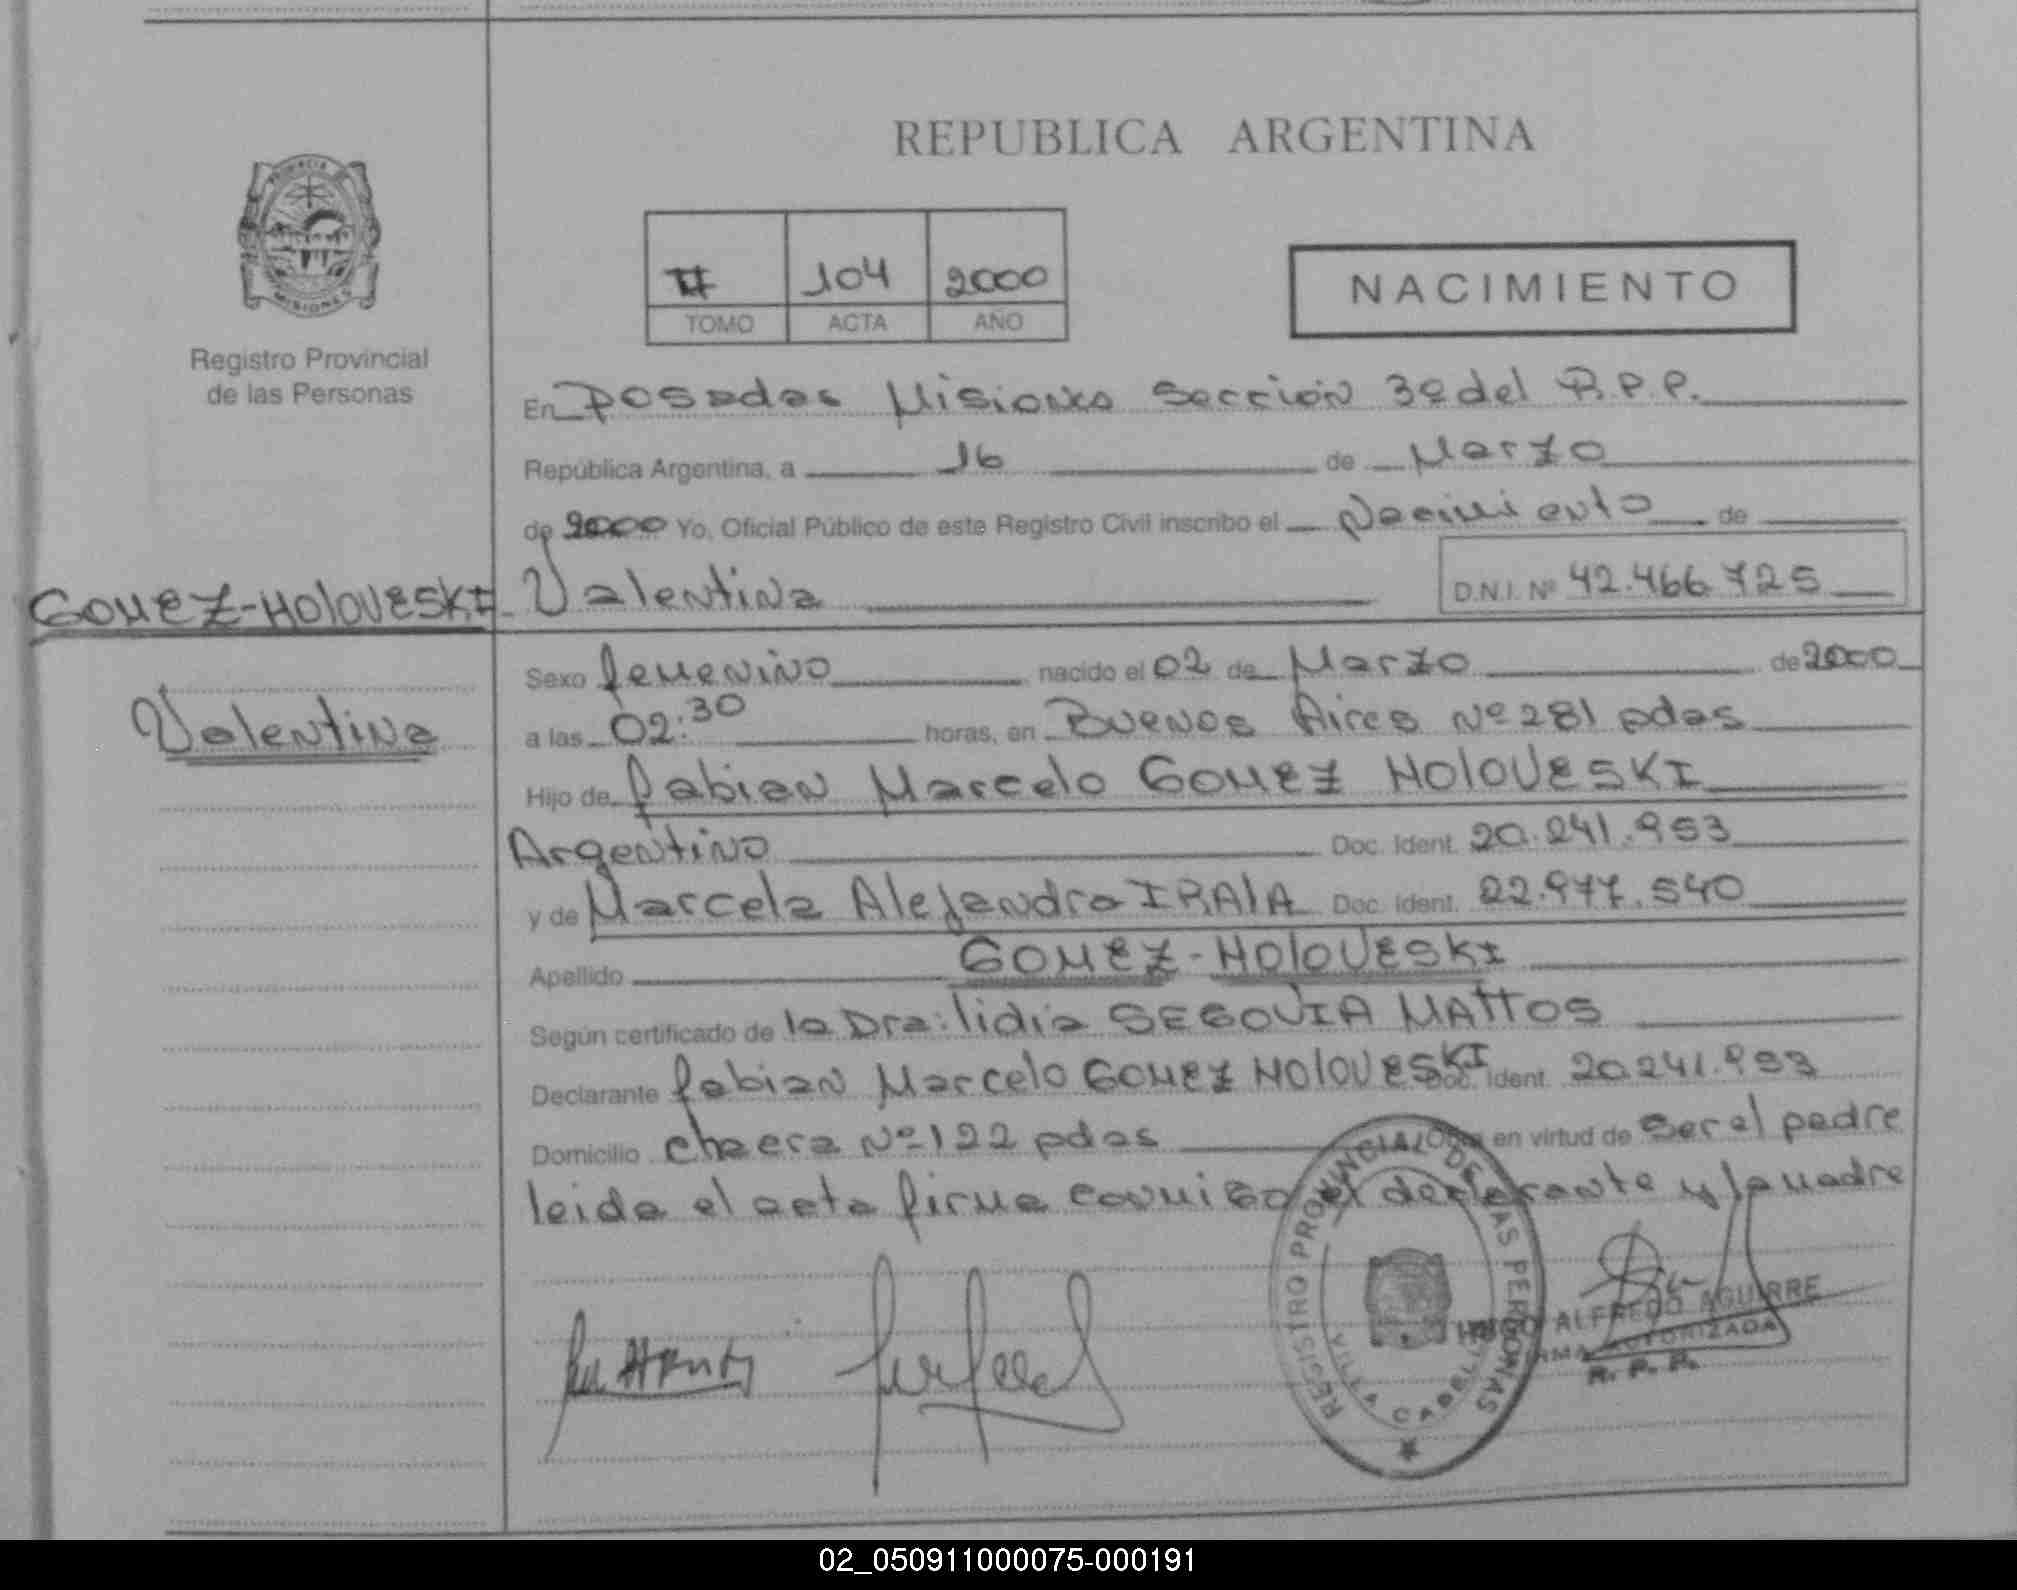 REPUBLICA ARGENTINA
PROVINCIA DE
MISIONES
Registro Provincial
de las Personas
104 2000
TOMO ACTA AÑO
NACIMIENTO
En Posadas Misiones Sección 3º del R.P.P.
República Argentina, a 16 de Marzo
de 2000 Yo, Oficial Público de este Registro Civil inscribo el Nacimiento de
GOMEZ-HOLOVESKI Valentina D.N.I. Nº 42.466.725
Valentina
Sexo femenino nacido el 02 de Marzo de 2000
a las 02:30 horas, en Buenos Aires Nº 281 pdas
Hijo de fabian Marcelo GOMEZ HOLOVESKI
Argentino Doc. Ident. 20.241.953
y de Marcela Alejandra IRALA Doc. Ident. 22.977.540
Apellido GOMEZ-HOLOVESKI
Según certificado de la Dra: lidia SEGOVIA MATTOS
Declarante fabian Marcelo GOMEZ HOLOVESKI Doc. Ident. 20.241.953
Domicilio chacra Nº 122 pdas Obra en virtud de ser el padre
leida el acta firma conmigo el declarante y la madre
REGISTRO PROVINCIAL DE LAS PERSONAS
VILLA CABELLO
HUGO ALFREDO AGUIRRE
FIRMA AUTORIZADA
R. P. P.
02_050911000075-000191